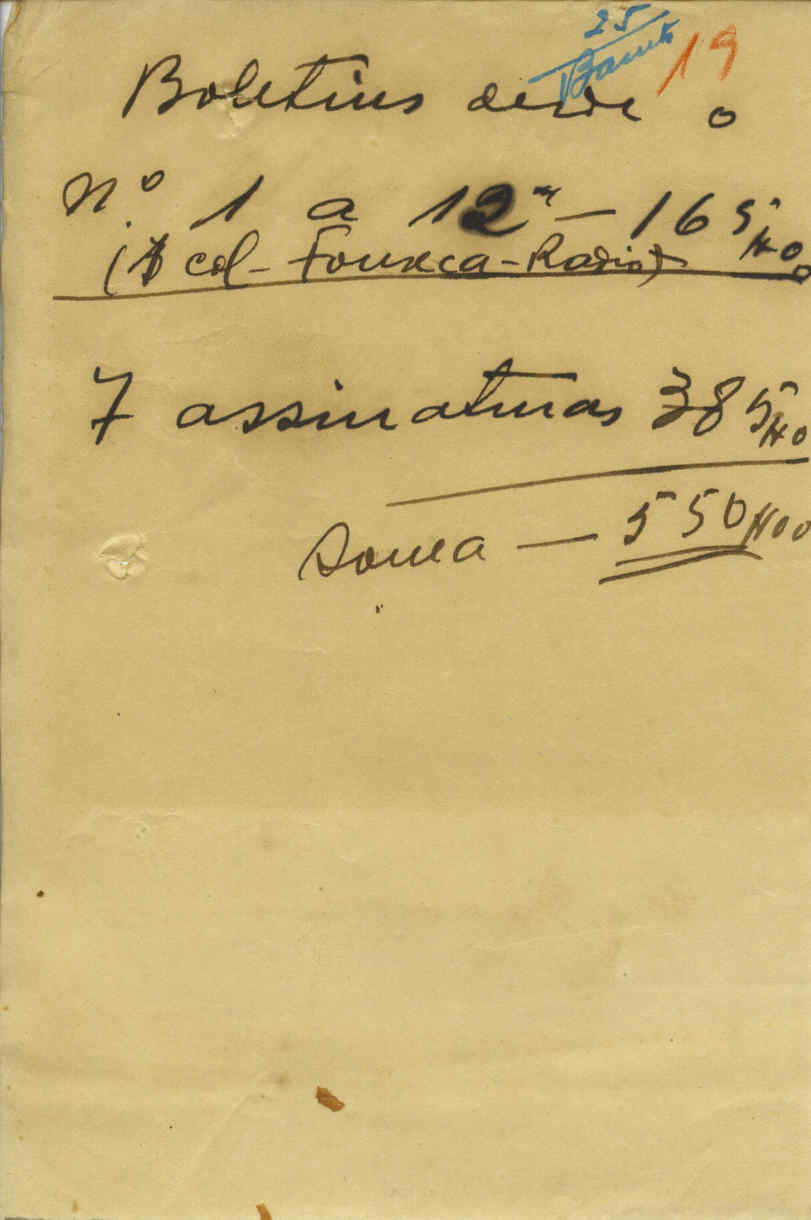 25
19
Boletins desde o
Nº 1 a 12 — 165$00
(1 col - Fonseca - Radio)
7 assinaturas 385$00
Soma — 550$00